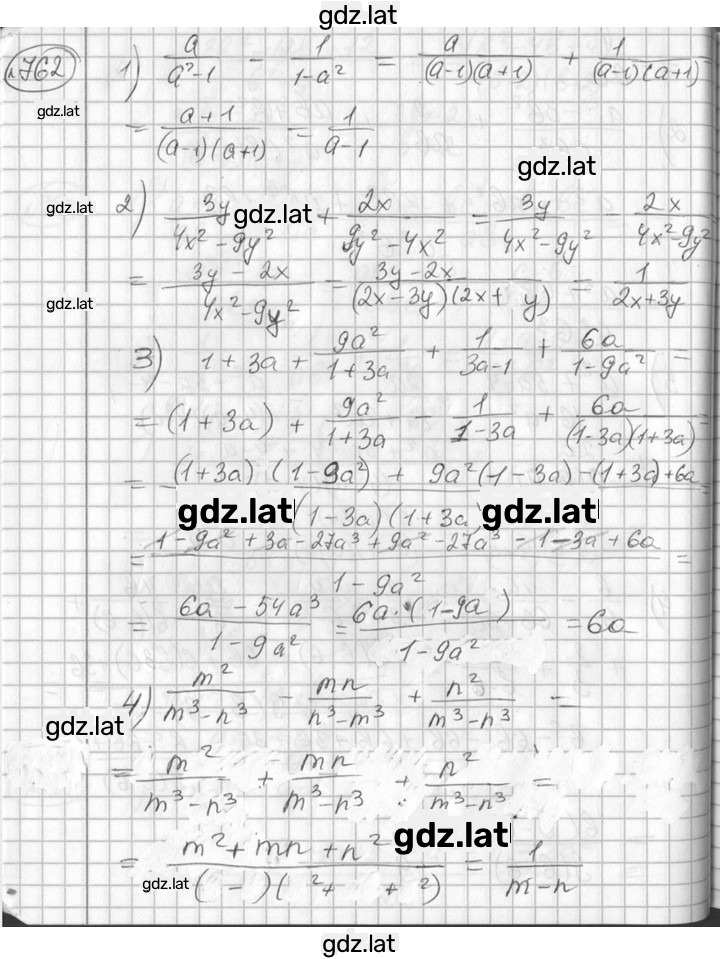 gdz.lat
№762 1) a/(a²-1) - 1/(1-a²) = a/((a-1)(a+1)) + 1/((a-1)(a+1))
gdz.lat
= (a+1)/((a-1)(a+1)) = 1/(a-1)
gdz.lat
gdz.lat 2) 3y/(4x²-9y²) gdz.lat + 2x/(9y²-4x²) = 3y/(4x²-9y²) - 2x/(4x²-9y²)
gdz.lat = (3y-2x)/(4x²-9y²) = (3y-2x)/((2x-3y)(2x+ y)) = 1/(2x+3y)
3) 1+3a + 9a²/(1+3a) + 1/(3a-1) + 6a/(1-9a²) =
= (1+3a) + 9a²/(1+3a) - 1/(1-3a) + 6a/((1-3a)(1+3a))
= ((1+3a)(1-9a²) + 9a²(1-3a) - (1+3a) + 6a)/((1-3a)(1+3a)) =
gdz.lat gdz.lat
= (1-9a²+3a-27a³+9a²-27a³-1-3a+6a)/(1-9a²) =
= (6a-54a³)/(1-9a²) = (6a·(1-9a ))/(1-9a²) = 6a
4) m²/(m³-n³) - mn/(n³-m³) + n²/(m³-n³) =
gdz.lat
= m²/(m³-n³) + mn/(m³-n³) + n²/(m³-n³) =
gdz.lat
= (m²+mn+n²)/(( - )( ²+ + ²)) = 1/(m-n)
gdz.lat
gdz.lat